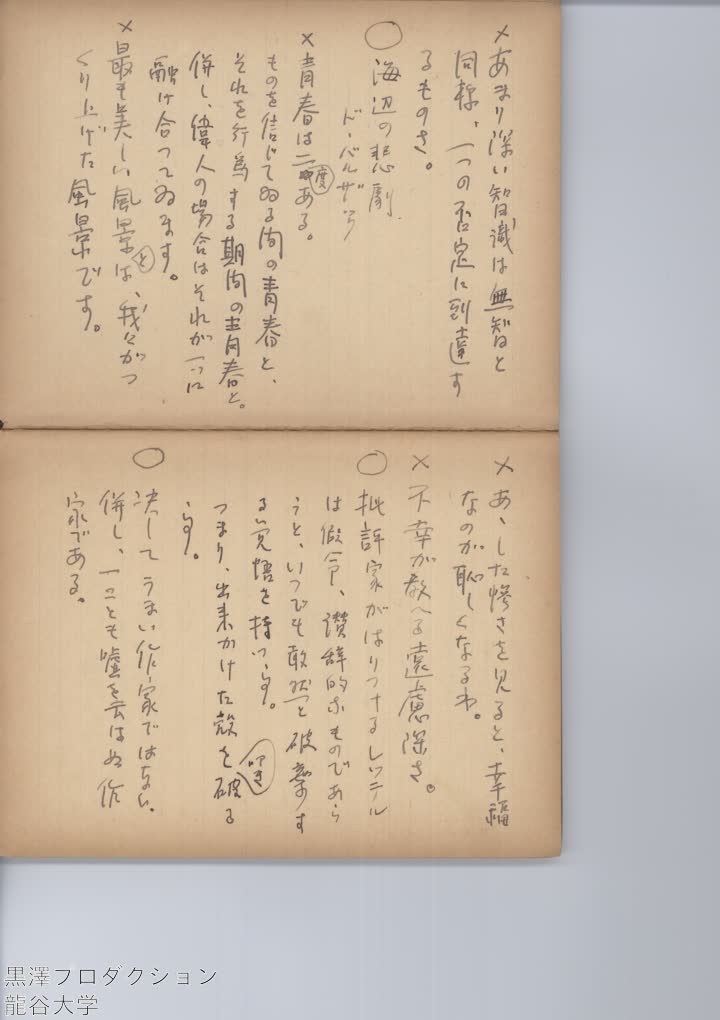 ×あまり深い智識は無智と
同様、一つの否定に到達す
るものさ。
○海辺の悲劇
ド・バルザック
×青春は二度ある。
ものを信じてゐる間の青春と、
それを行為する期間の青春と。
併し、偉人の場合はそれが一つに
融け合つてゐます。
×最も美しい風景は、我々がつ
と
くり上げた風景です。
×あゝした惨さを見ると、幸福
なのが恥しくなるわ。
×不幸が教へる遠慮深さ。
○批評家がはりつけるレッテル
は仮令、讃辞的なものであら
うと、いつでも敢然と破棄す
る覚悟を持つ事。
つまり、出来かけた殻を破る
事。
○決してうまい作家ではない。
併し、一ことも嘘を云はぬ作
家である。
黒澤プロダクション
龍谷大学